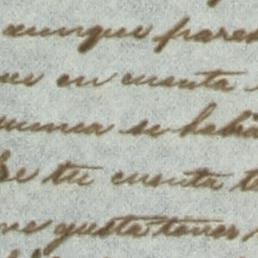 aunque pare
en cuenta
nunca se habia
de tu cuenta t
me gusta tener